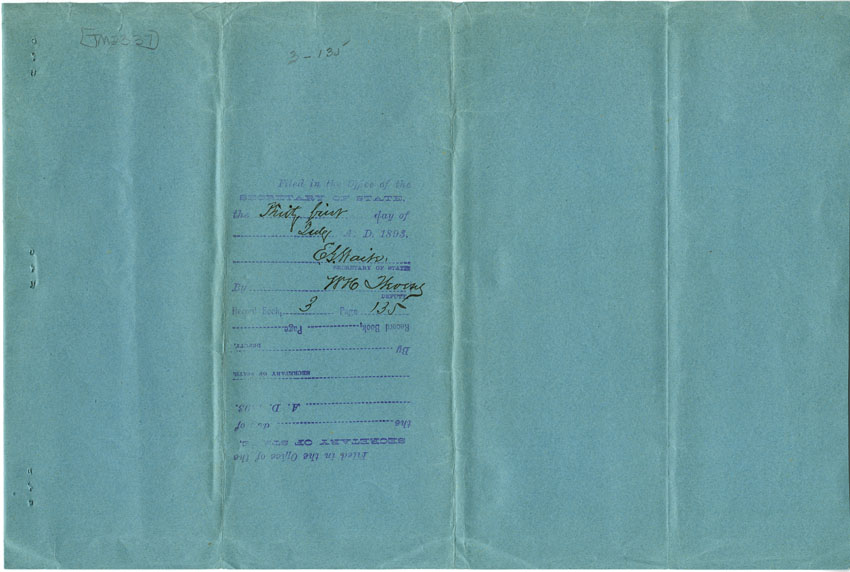 TM2337
3-135
Filed in the Office of the
SECRETARY OF STATE,
the Thirty first day of
July A. D. 1893.
E G Waite.
SECRETARY OF STATE
By W H
DEPUTY
Record Book, 3 Page 135
Record Book, Page
By DEPUTY.
SECRETARY OF STATE
A. D. 93.
the day of
SECRETARY OF STATE,
Filed in the Office of the